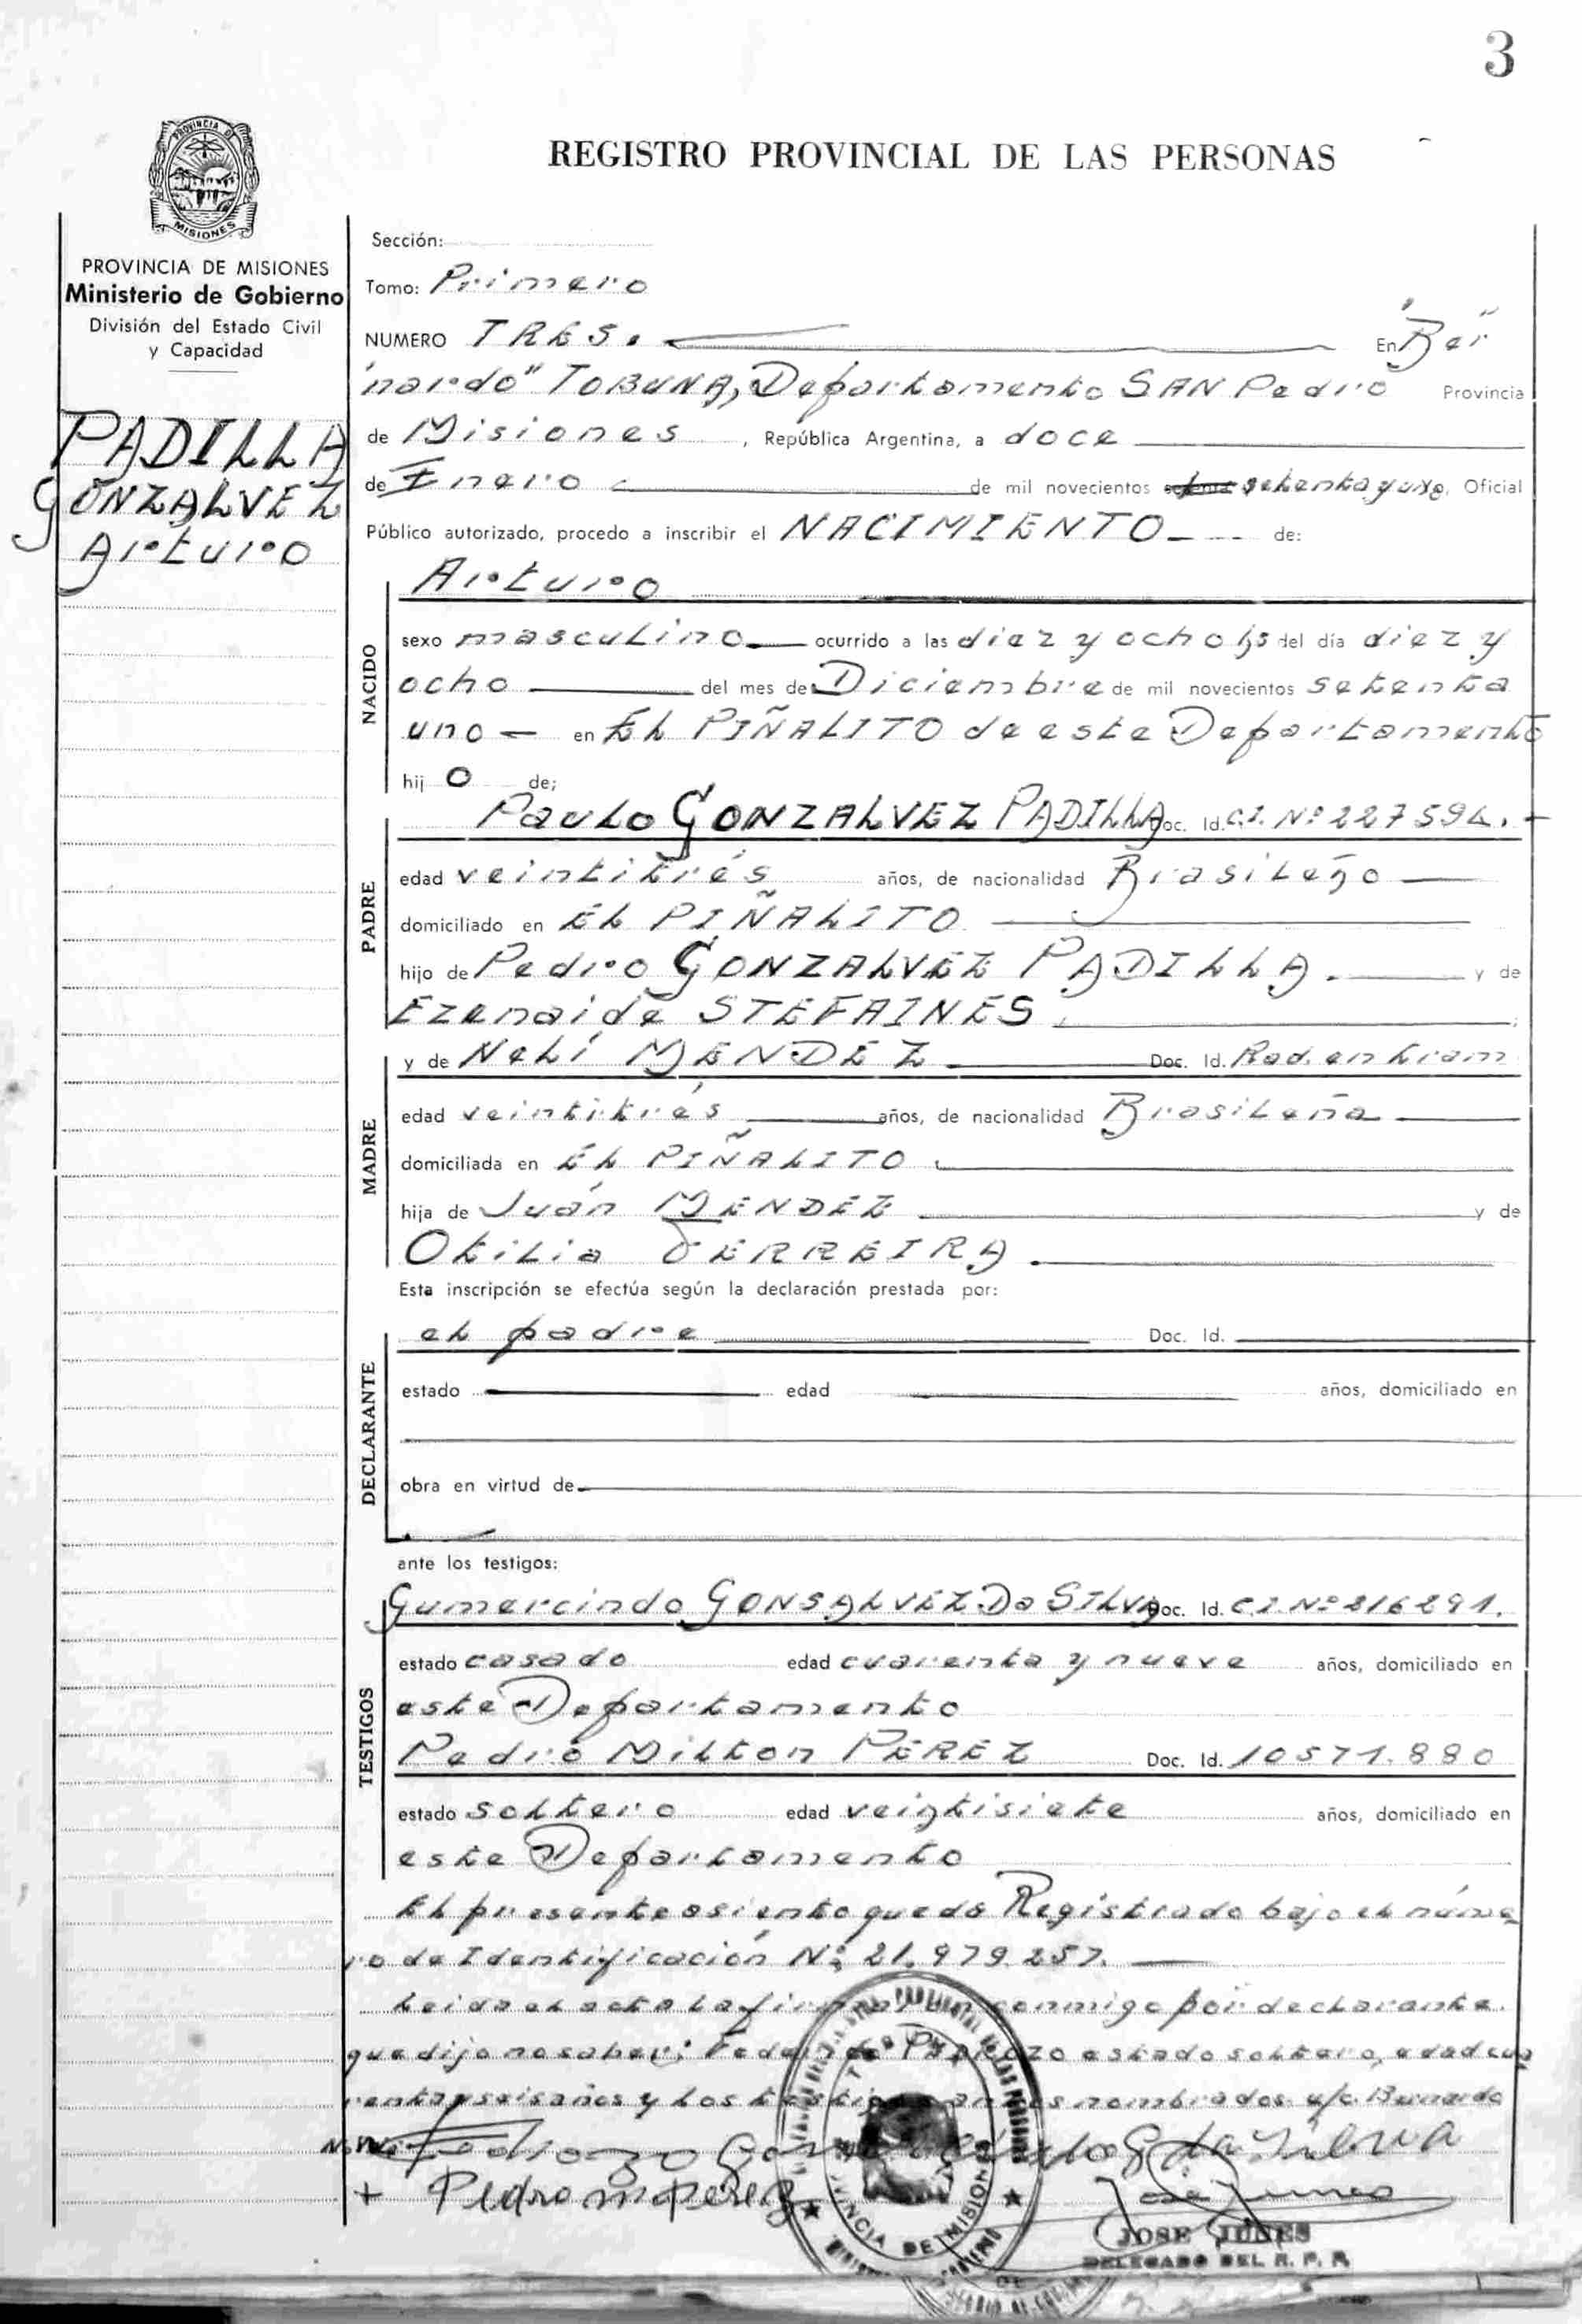 3
REGISTRO PROVINCIAL DE LAS PERSONAS
PROVINCIA DE
MISIONES
PROVINCIA DE MISIONES
Ministerio de Gobierno
División del Estado Civil
y Capacidad
PADILLA
GONZALVEZ
Arturo
Sección:
Tomo: Primero
NUMERO TRES. En "Ber
nardo" TOBUNA, Departamento SAN Pedro Provincia
de Misiones , República Argentina, a doce
de Enero de mil novecientos setenta y uno, Oficial
Público autorizado, procedo a inscribir el NACIMIENTO de:
Arturo
NACIDO
sexo masculino ocurrido a las diez y ocho hs del día diez y
ocho del mes de Diciembre de mil novecientos setenta
uno en EL PIÑALITO de este Departamento
hij o de;
PADRE
Paulo GONZALVEZ PADILLA Doc. Id. C.I. Nº 227594.
edad veintitrés años, de nacionalidad Brasileño
domiciliado en EL PIÑALITO
hijo de Pedro GONZALVEZ PADILLA. y de
Ezenaide STEFAINES
MADRE
y de Nelí MENDEZ Doc. Id. Rad. en tram
edad veintitrés años, de nacionalidad Brasileña
domiciliada en EL PIÑALITO
hija de Juán MENDEZ y de
Otilia FERREIRA
Esta inscripción se efectúa según la declaración prestada por:
DECLARANTE
el padre Doc. Id.
estado edad años, domiciliado en
obra en virtud de
ante los testigos:
TESTIGOS
Gumercindo GONSALVEZ Da SILVA Doc. Id. C.I. Nº 216291.
estado casado edad cuarenta y nueve años, domiciliado en
este Departamento
Pedro Milton PEREZ Doc. Id. 10571.880
estado soltero edad veintisiete años, domiciliado en
este Departamento
El presente asiento queda Registrado bajo el núme
ro de Identificación Nº 21.979.257.
Leida el acta la conmigo por declarante
que dijo no saber; estado soltero, edad cua
renta y seis años y los testigos antes nombrados. Bernardo
da Silva
+ Pedro M Perez
JOSE JUNES
DELEGADO DEL R. P. P.
PROVINCIA DE MISIONES